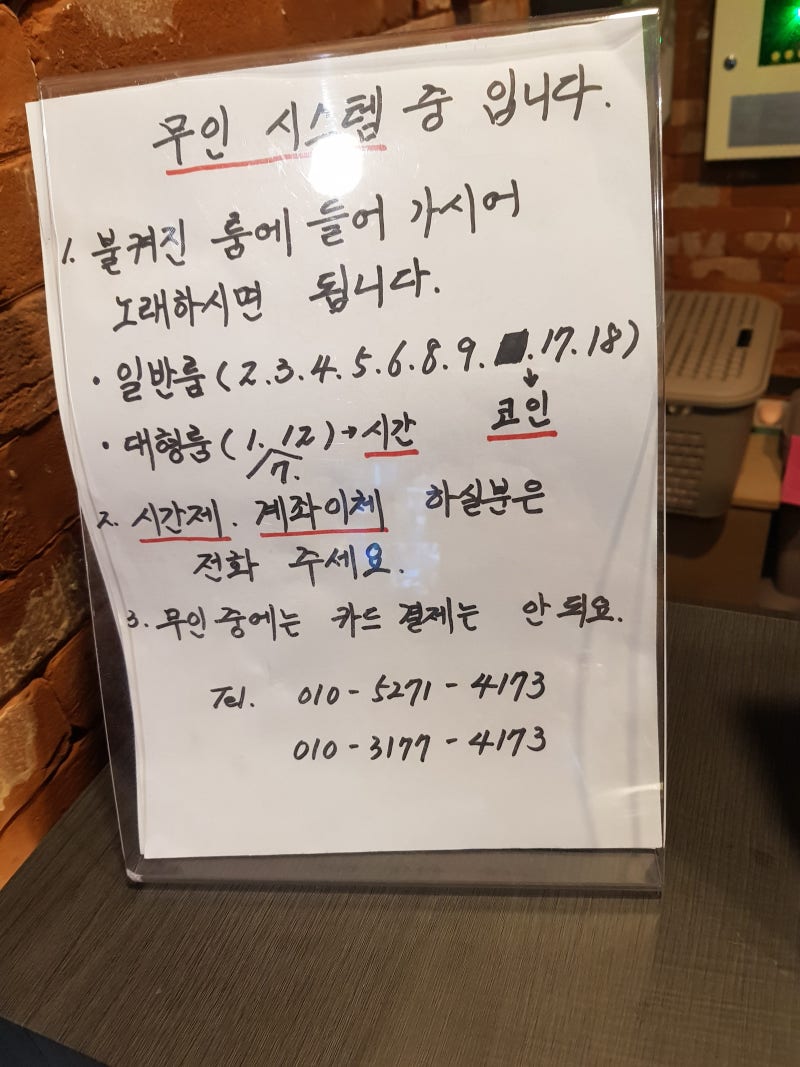 무인 시스템 중 입니다.
1. 불켜진 룸에 들어 가시어
노래하시면 됩니다.
· 일반룸 (2.3.4.5.6.8.9. .17.18)
↓
코인
· 대형룸 (1. 12) → 시간
7.
2. 시간제. 계좌이체 하실분은
전화 주세요.
3. 무인 중에는 카드 결제는 안 되요.
Tel. 010-5271-4173
010-3177-4173